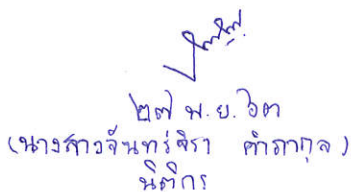 ๒๗ พ.ย. ๖๓
(นางสาวจันทร์จิรา คำภากุล)
นิติกร